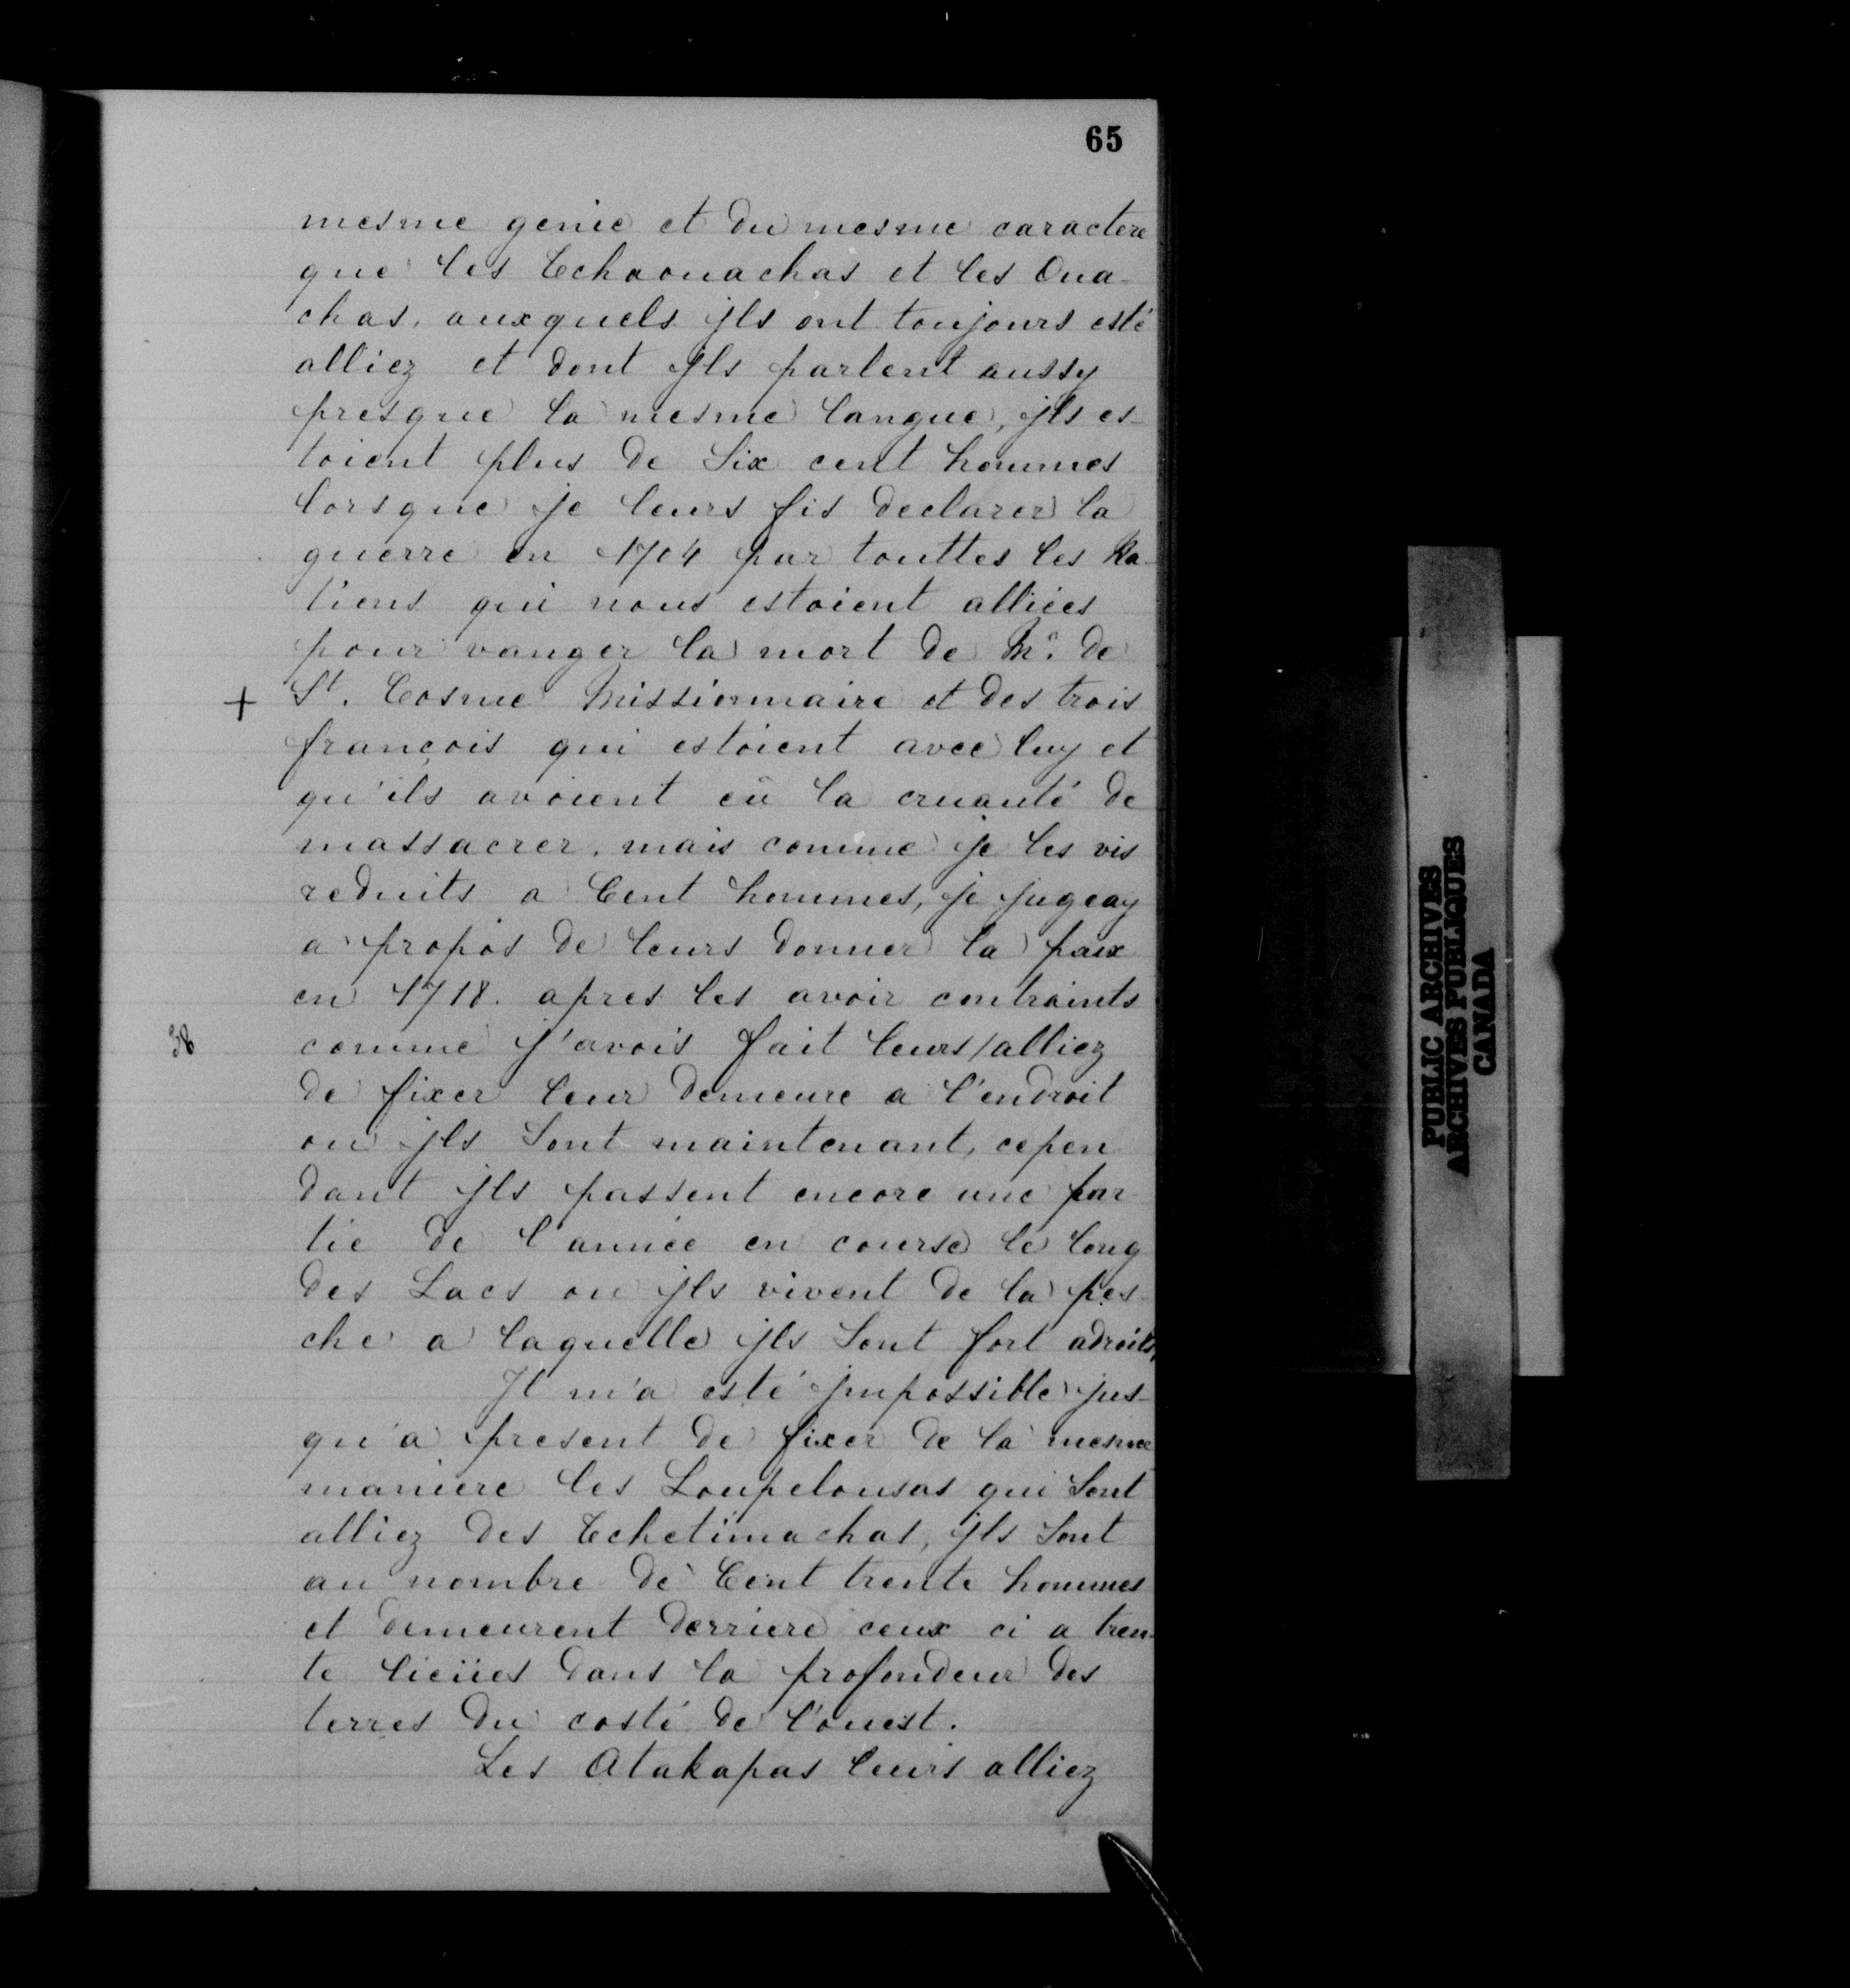 65
mesme genie et du mesme caractere
que les Tchaouachas et les Oua-
chas, auxquels jls ont toujours esté
alliez et dont jls parlent aussy
presque la mesme langue, jls es-
toient plus de Six cent hommes
lorsque je leurs fis declarer la
guerre en 1704 par touttes les Na-
tions qui nous estoient alliées
pour vanger la mort de Mr. de
+ St. Cosme Missionnaire et des trois
françois qui estoient avec luy et
qu'ils avoient eü la cruauté de
massacrer, mais comme je les vis
reduits a Cent hommes, je jugeay
a propos de leurs donner la paix
en 1718. apres les avoir contraints
38 comme j'avois fait leurs/alliez
de fixer leur demeure a l'endroit
ou jls Sont maintenant, cepen
dant jls passent encore une par
tie de l'année en course le long
des Lacs ou jls vivent de la pes-
che a laquelle jls Sont fort adroits,
Jl m'a esté jmpossible jus-
qu'a present de fixer de la mesme
maniere les Loupelousas qui Sont
alliez des Tchetimachas, jls Sont
au nombre de Cent trente hommes
et demeurent derriere ceux ci a tren-
te lieües dans la profondeur des
terres du costé de l'ouest.
Les Atakapas leurs alliez
PUBLIC ARCHIVES
ARCHIVES PUBLIQUES
CANADA